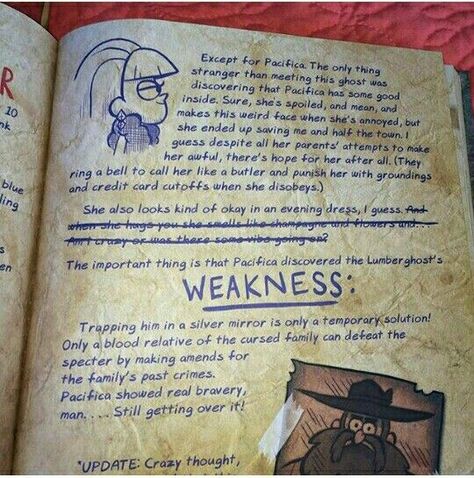 R
10
nk
blue
ling
s
en
Except for Pacifica. The only thing
stranger than meeting this ghost was
discovering that Pacifica has some good
inside. Sure, she's spoiled, and mean, and
makes this weird face when she's annoyed, but
she ended up saving me and half the town. I
guess despite all her parents' attempts to make
her awful, there's hope for her after all. (They
ring a bell to call her like a butler and punish her with groundings
and credit card cutoffs when she disobeys.)
She also looks kind of okay in an evening dress, I guess. And
when she hugs you she smells like champagne and flowers and...
Am I crazy or was there some vibe going on?
The important thing is that Pacifica discovered the Lumberghost's
WEAKNESS:
Trapping him in a silver mirror is only a temporary solution!
Only a blood relative of the cursed family can defeat the
specter by making amends for
the family's past crimes.
Pacifica showed real bravery,
man. . . . Still getting over it!
*UPDATE: Crazy thought,